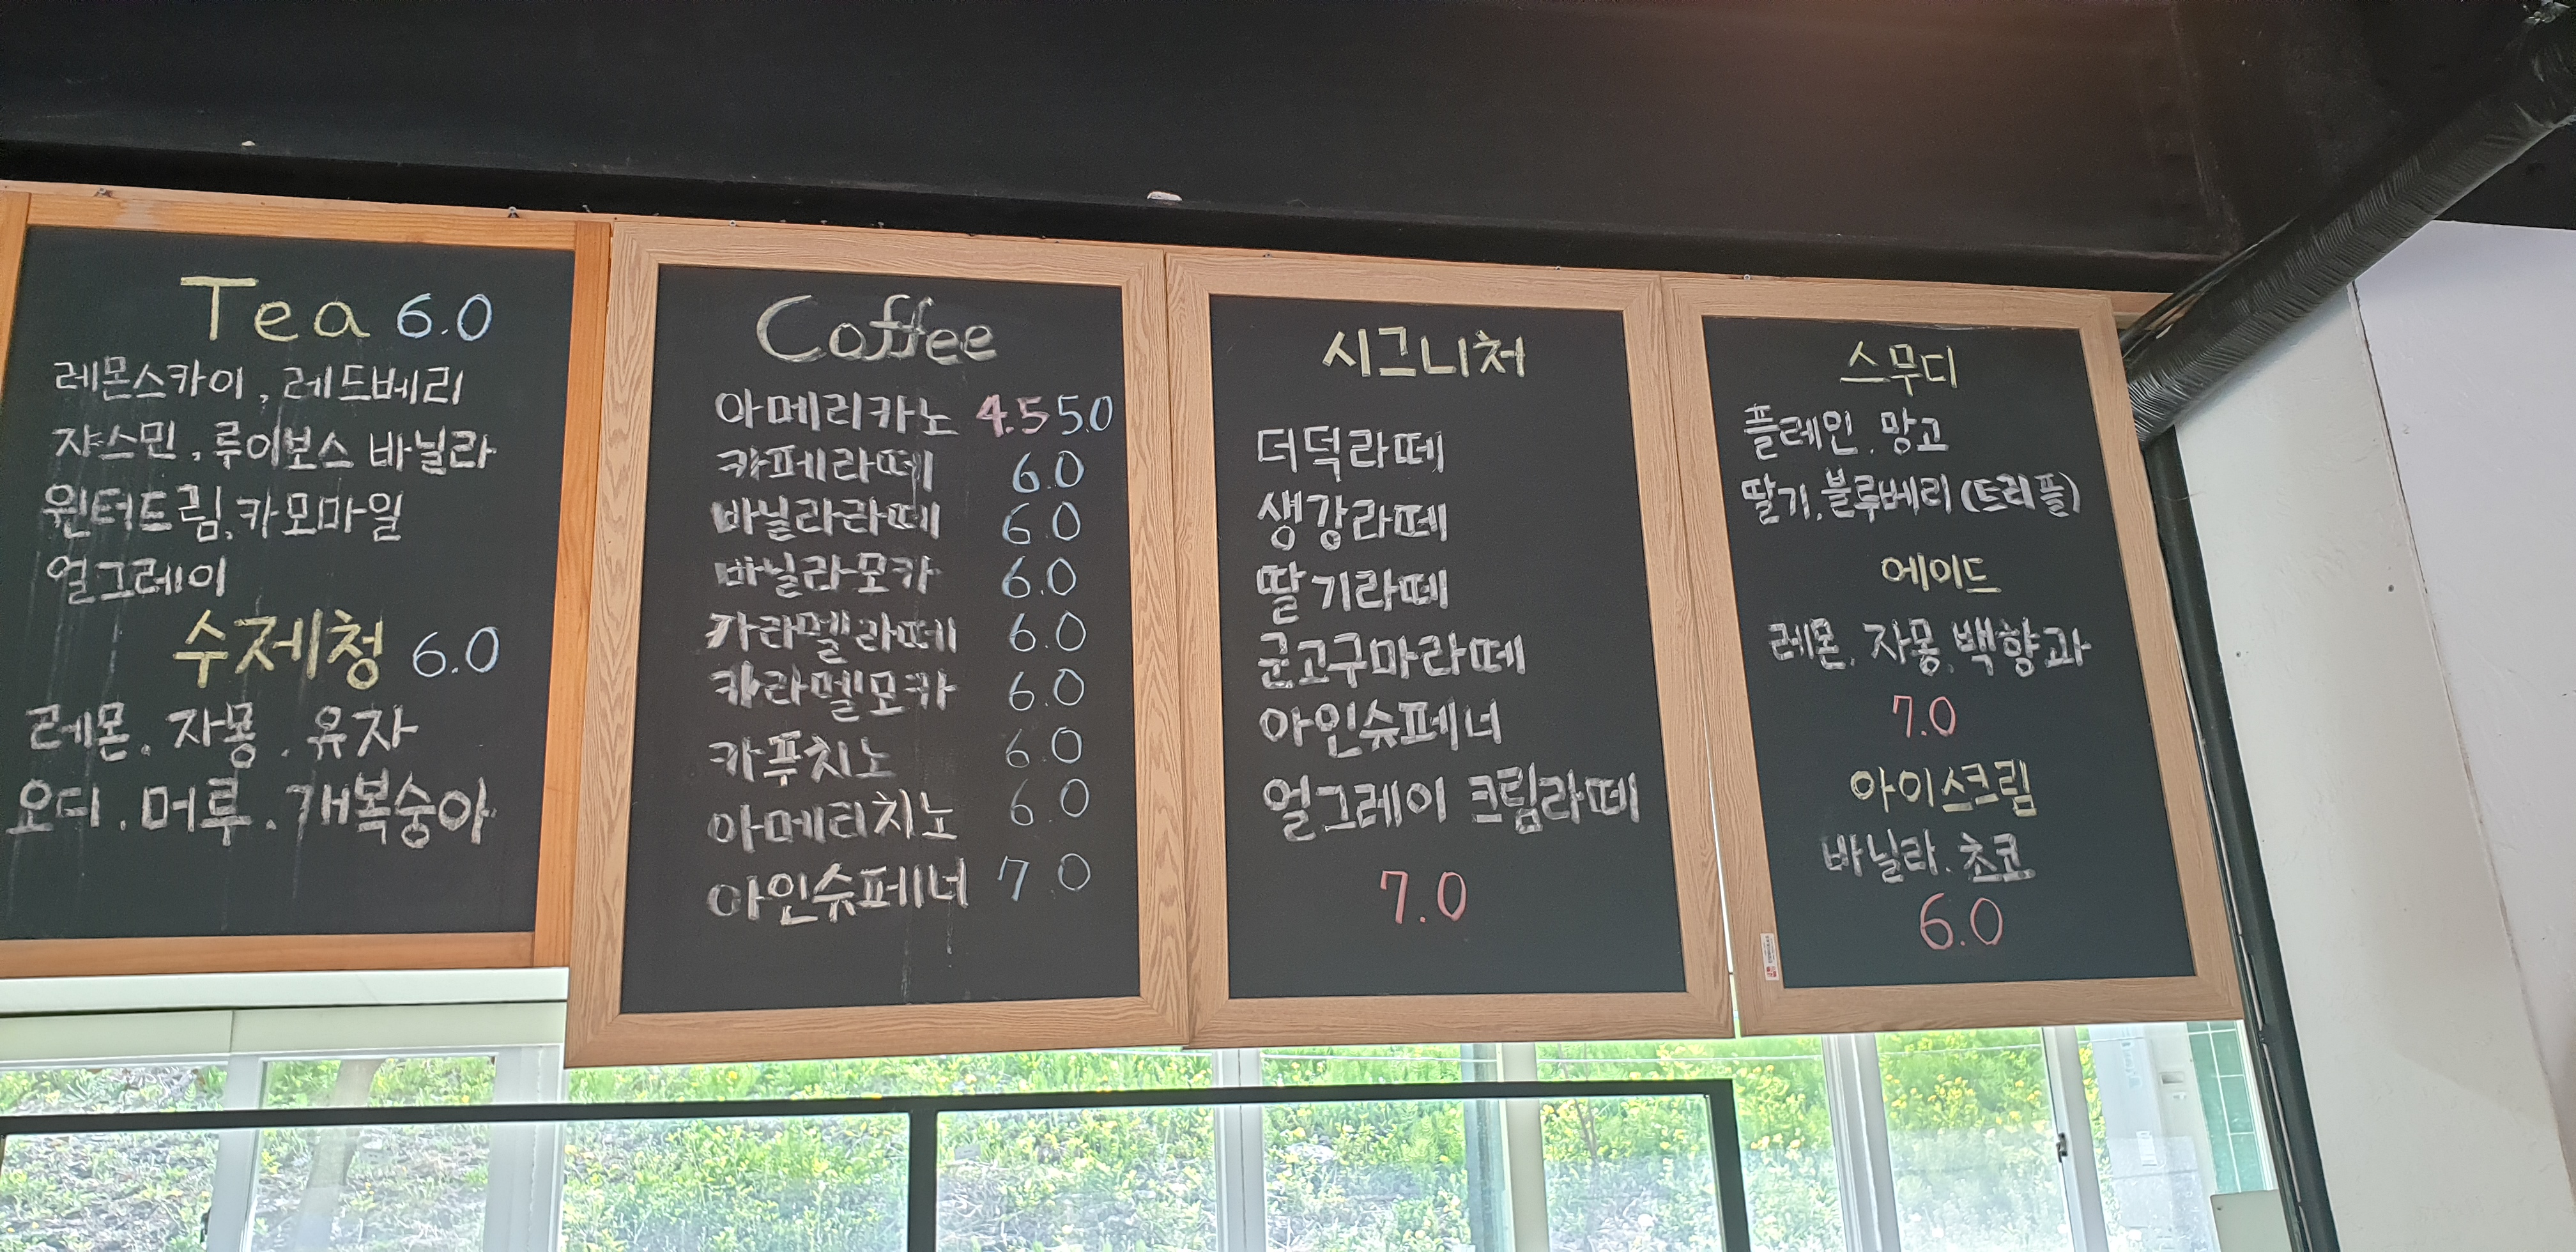 Tea 6.0
레몬스카이, 레드베리
쟈스민, 루이보스 바닐라
윈터드림, 카모마일
얼그레이
수제청 6.0
레몬. 자몽. 유자
오디. 머루. 개복숭아
Coffee
아메리카노 4.5 5.0
카페라떼 6.0
바닐라라떼 6.0
바닐라모카 6.0
카라멜라떼 6.0
카라멜모카 6.0
카푸치노 6.0
아메리치노 6.0
아인슈페너 7.0
시그니처
더덕라떼
생강라떼
딸기라떼
군고구마라떼
아인슈페너
얼그레이 크림라떼
7.0
스무디
플레인. 망고
딸기. 블루베리 (트리플)
에이드
레몬. 자몽. 백향과
7.0
아이스크림
바닐라. 초코
6.0